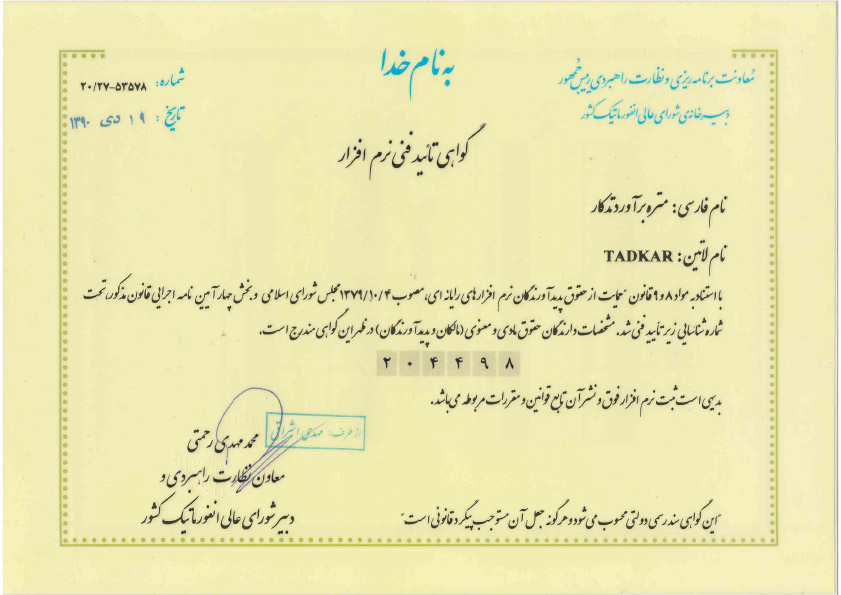 به نام خدا
معاونت برنامه ریزی و نظارت راهبردی رئیس جمهور
دبیرخانه‌ی شورای عالی انفورماتیک کشور
شماره: ۲۰/۲۷-۵۳۵۷۸
تاریخ: ۱۹ دی ۱۳۹۰
گواهی تائید فنی نرم افزار
نام فارسی: متره برآورد تدکار
نام لاتین: TADKAR
با استناد به مواد ۸ و ۹ قانون "حمایت از حقوق پدیدآورندگان نرم افزارهای رایانه ای، مصوب ۱۳۷۹/۱۰/۴ مجلس شورای اسلامی و بخش چهار آیین نامه اجرایی قانون مذکور، تحت
شماره شناسایی زیر تایید فنی شد. مشخصات دارندگان حقوق مادی و معنوی (مالکان و پدیدآورندگان) در ظهر این گواهی مندرج است.
۲۰۴۴۹۸
بدیهی است ثبت نرم افزار فوق و نشر آن تابع قوانین و مقررات مربوطه می‌باشد.
از طرف: مهدی اشراقی
محمد مهدی رحمتی
معاون نظارت راهبردی و
دبیر شورای عالی انفورماتیک کشور
"این گواهی سند رسمی دولتی محسوب می شود و هرگونه جعل آن مستوجب پیگرد قانونی است"